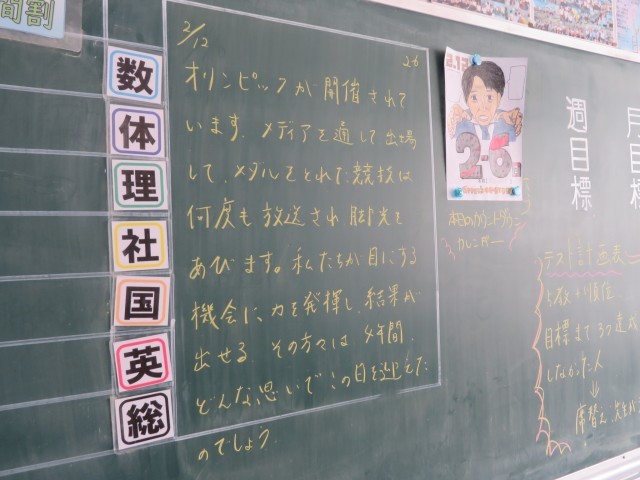 間割
数
体
理
社
国
英
総
2/12
26
オリンピックが開催されて
います。メディアを通して出場
して、メダルをとれた競技は
何度も放送され脚光を
あびます。私たちが目にする
機会に、力を発揮し、結果が
出せる。その方々は4年間、
どんな思いでこの日を迎えた
のでしょう。
本日のカウントダウン
カレンダー
週目標
月目標
テスト計画表
目標まで3つ達成
しなかった人